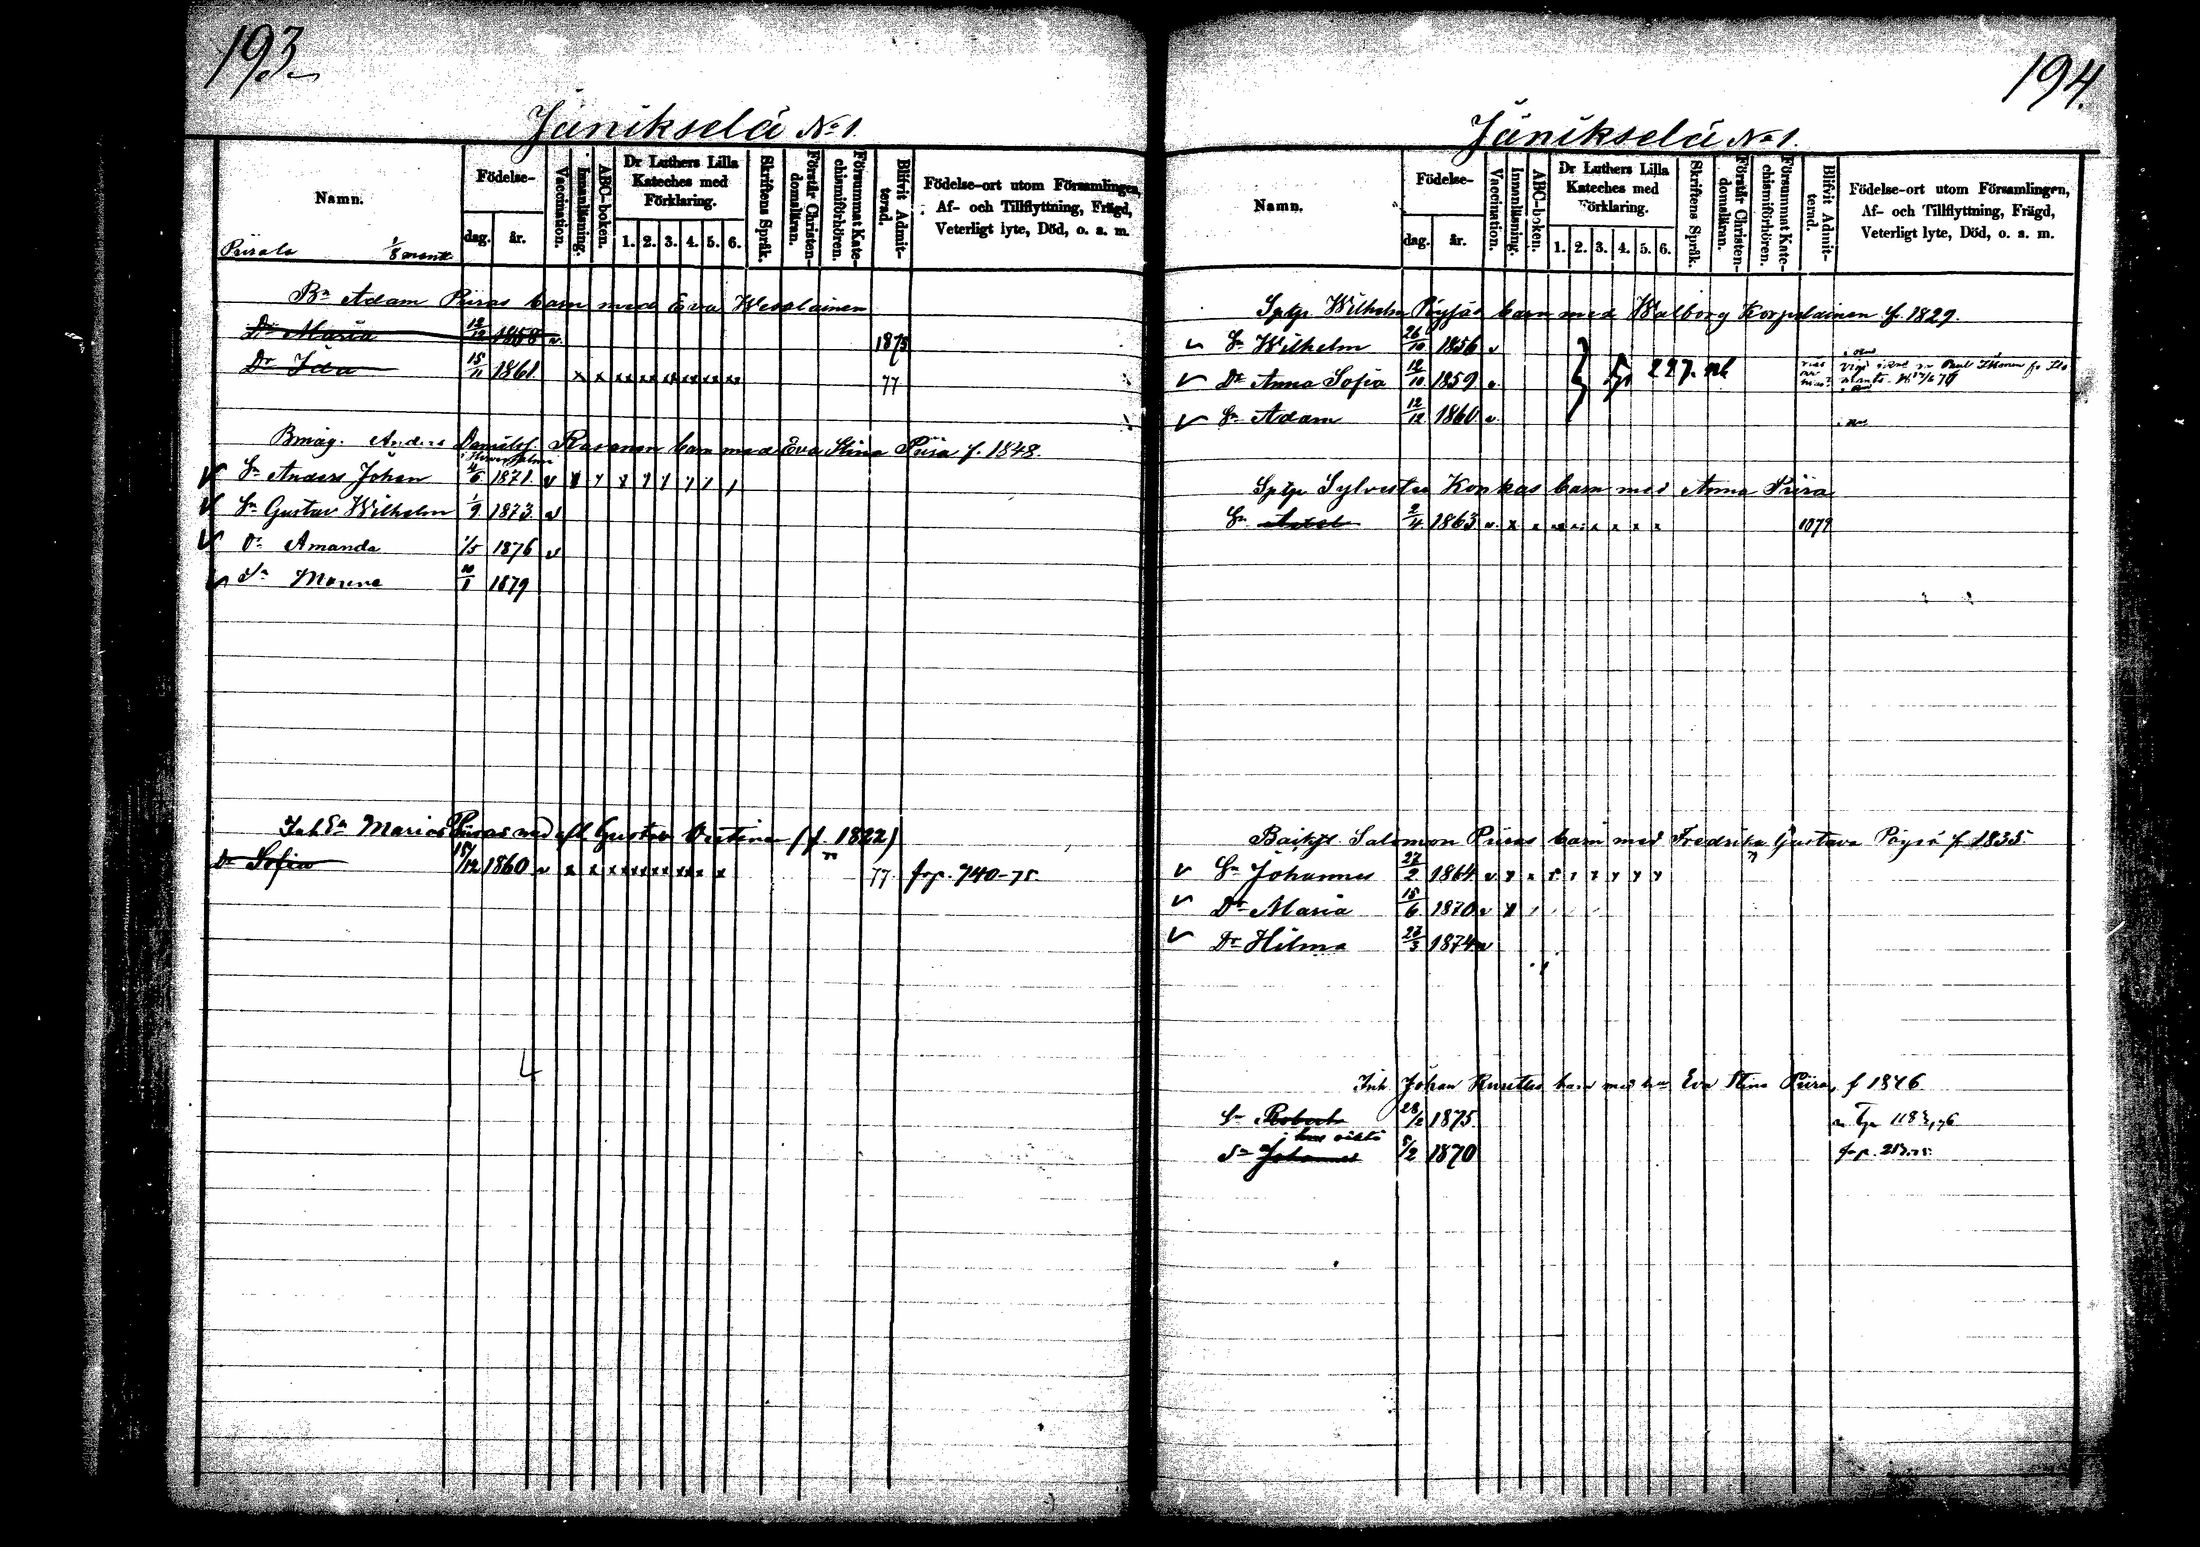 193
Jänikselä No 1.
Namn.
Födelse-
dag. år.
Vaccination.
Innanläsning.
ABC-boken.
Dr Luthers Lilla Kateches med Förklaring.
1. 2. 3. 4. 5. 6.
Skriftens Språk.
Förstår Christendomsläran.
Försummat Katechismiförhören.
Blifvit Admitterad.
Födelse-ort utom Församlingen, Af- och Tillflyttning, Frägd, Veterligt lyte, Död, o. a. m.
Piirala 1/8 mantl
Bn Adam Piiras barn med Eva Wesslainen
Dr Maria 12/12 1858 v. 1875
Dr Ida 15/11 1861. x x x x x x x x x 77
Bmåg. Anders Danielsf. Rasanen barn med Eva Stina Piira f. 1848.
Sn Anders Johan 4/6 1871. v
Sn Gustav Wilhelm 1/9 1873 v
Dr Amanda 1/5 1876 v
1879
Inh Gustava (f. 1822)
Dr Sofia 15/12 1860 v x x x x x x x x 77 frp. 740-75.
194.
Jänikselä No 1.
Namn.
Födelse-
dag. år.
Vaccination.
Innanläsning.
ABC-boken.
Dr Luthers Lilla Kateches med Förklaring.
1. 2. 3. 4. 5. 6.
Skriftens Språk.
Förstår Christendomsläran.
Försummat Katechismiförhören.
Blifvit Admitterad.
Födelse-ort utom Församlingen, Af- och Tillflyttning, Frägd, Veterligt lyte, Död, o. a. m.
Sptgr Wilhelm Pöyjäs barn med Walborg Korpelainen f. 1829.
Sn Wilhelm 26/10 1856 v
Dr Anna Sofia 12/10 1859 v. 227.
Sn Adam 12/12 1860. v.
Sptgr Sylvester Konkas barn med Anna Piira
Sn Axel 2/4 1863 v. x x x x x x x 1879
Salomon Piiras barn med Fredrika Gustava Pöysä f. 1835.
Sn Johannes 27/2 1864 v
Dr Maria 15/6 1870 v
Dr Hilma 27/3 1874 v
Inh. Johan barn med Eva Stina Piira, f 1846
Sn Robert 28/2 1875.
Sn Johannes 5/2 1870